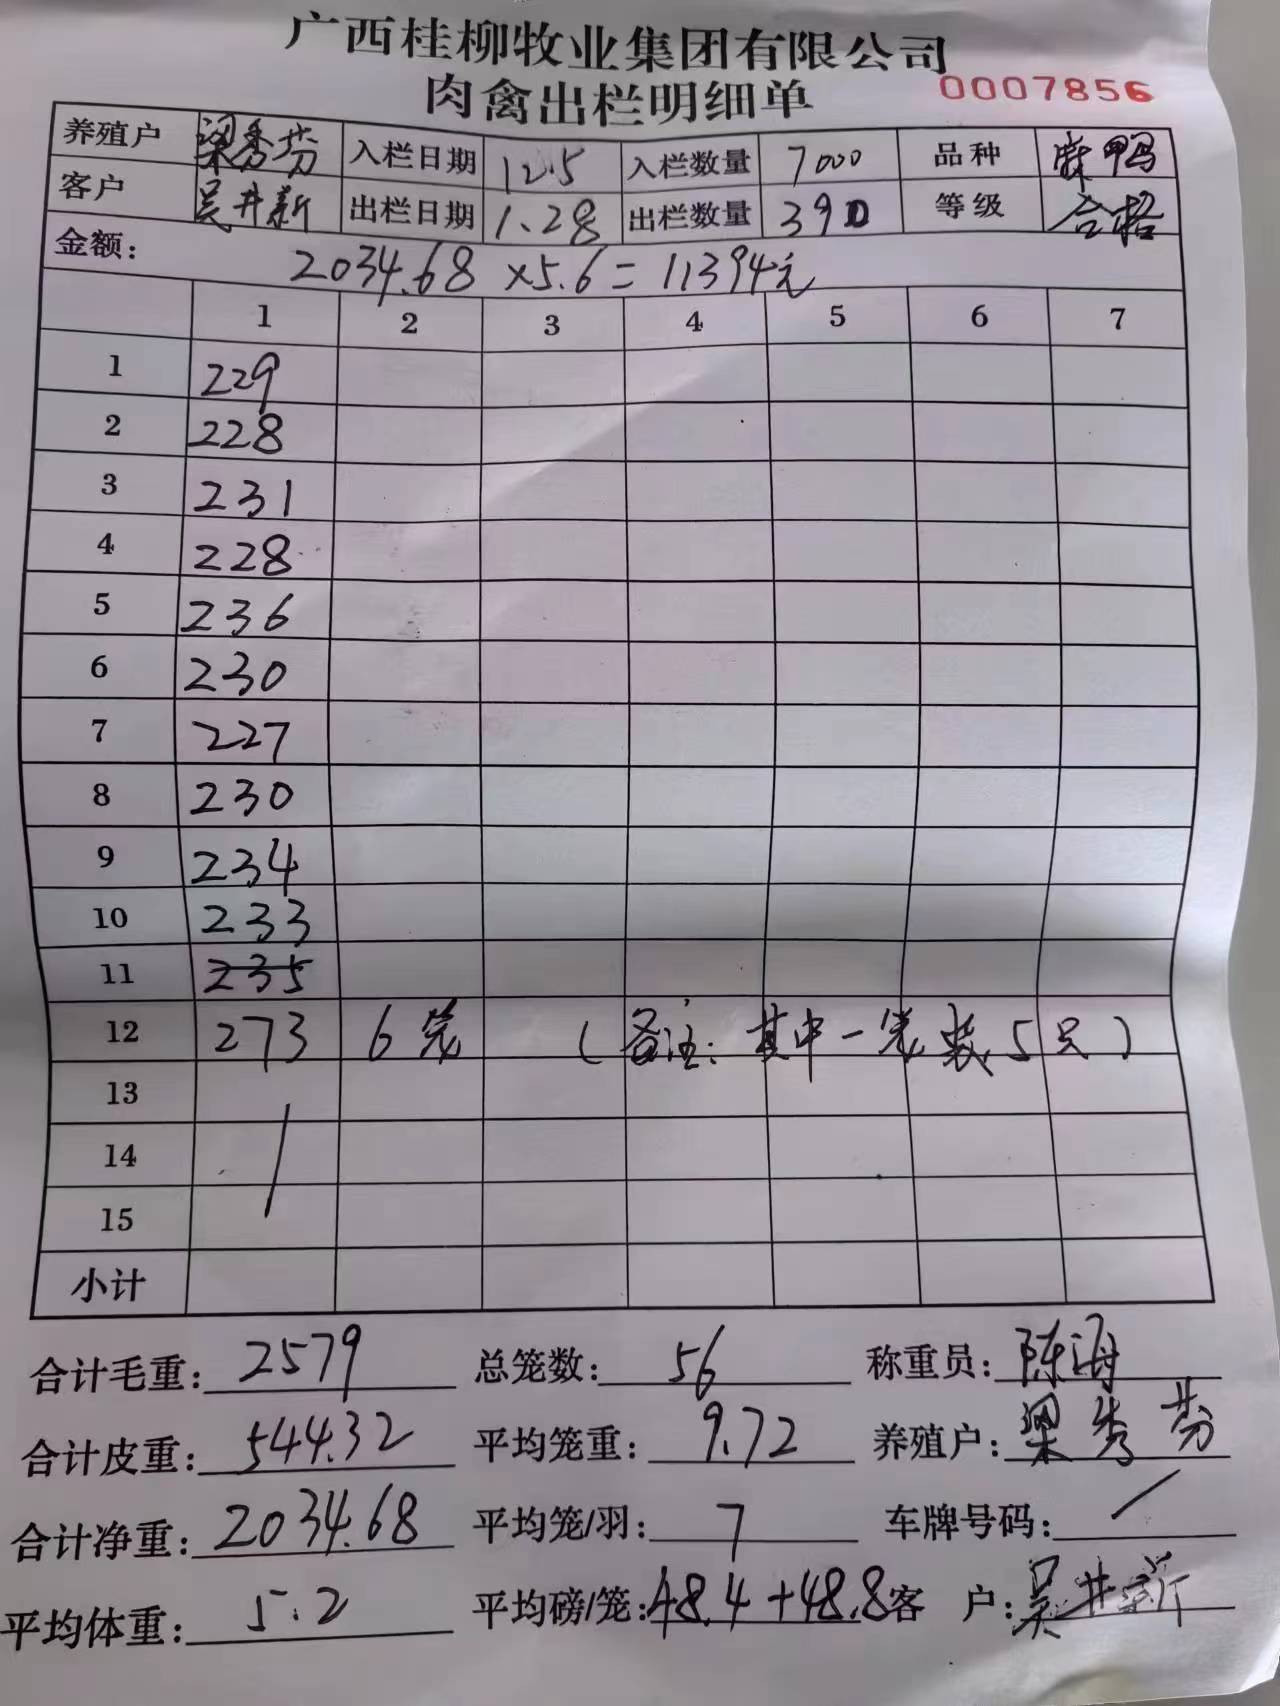 广西桂柳牧业集团有限公司
肉禽出栏明细单 0007856
养殖户 梁秀芬 入栏日期 12.5 入栏数量 7000 品种 麻鸭
客户 吴井新 出栏日期 1.28 出栏数量 390 等级 合格
金额: 2034.68 ×5.6 = 11394元
1 2 3 4 5 6 7
1 229
2 228
3 231
4 228
5 236
6 230
7 227
8 230
9 234
10 233
11 235
12 273 6笼 (备注: 其中一笼装5只)
13
14
15
小计
合计毛重: 2579 总笼数: 56 称重员: 陈海
合计皮重: 544.32 平均笼重: 9.72 养殖户: 梁秀芬
合计净重: 2034.68 平均笼/羽: 7 车牌号码: /
平均体重: 5.2 平均磅/笼: 48.4+48.8 客户: 吴井新